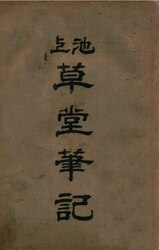 池上
草堂筆記